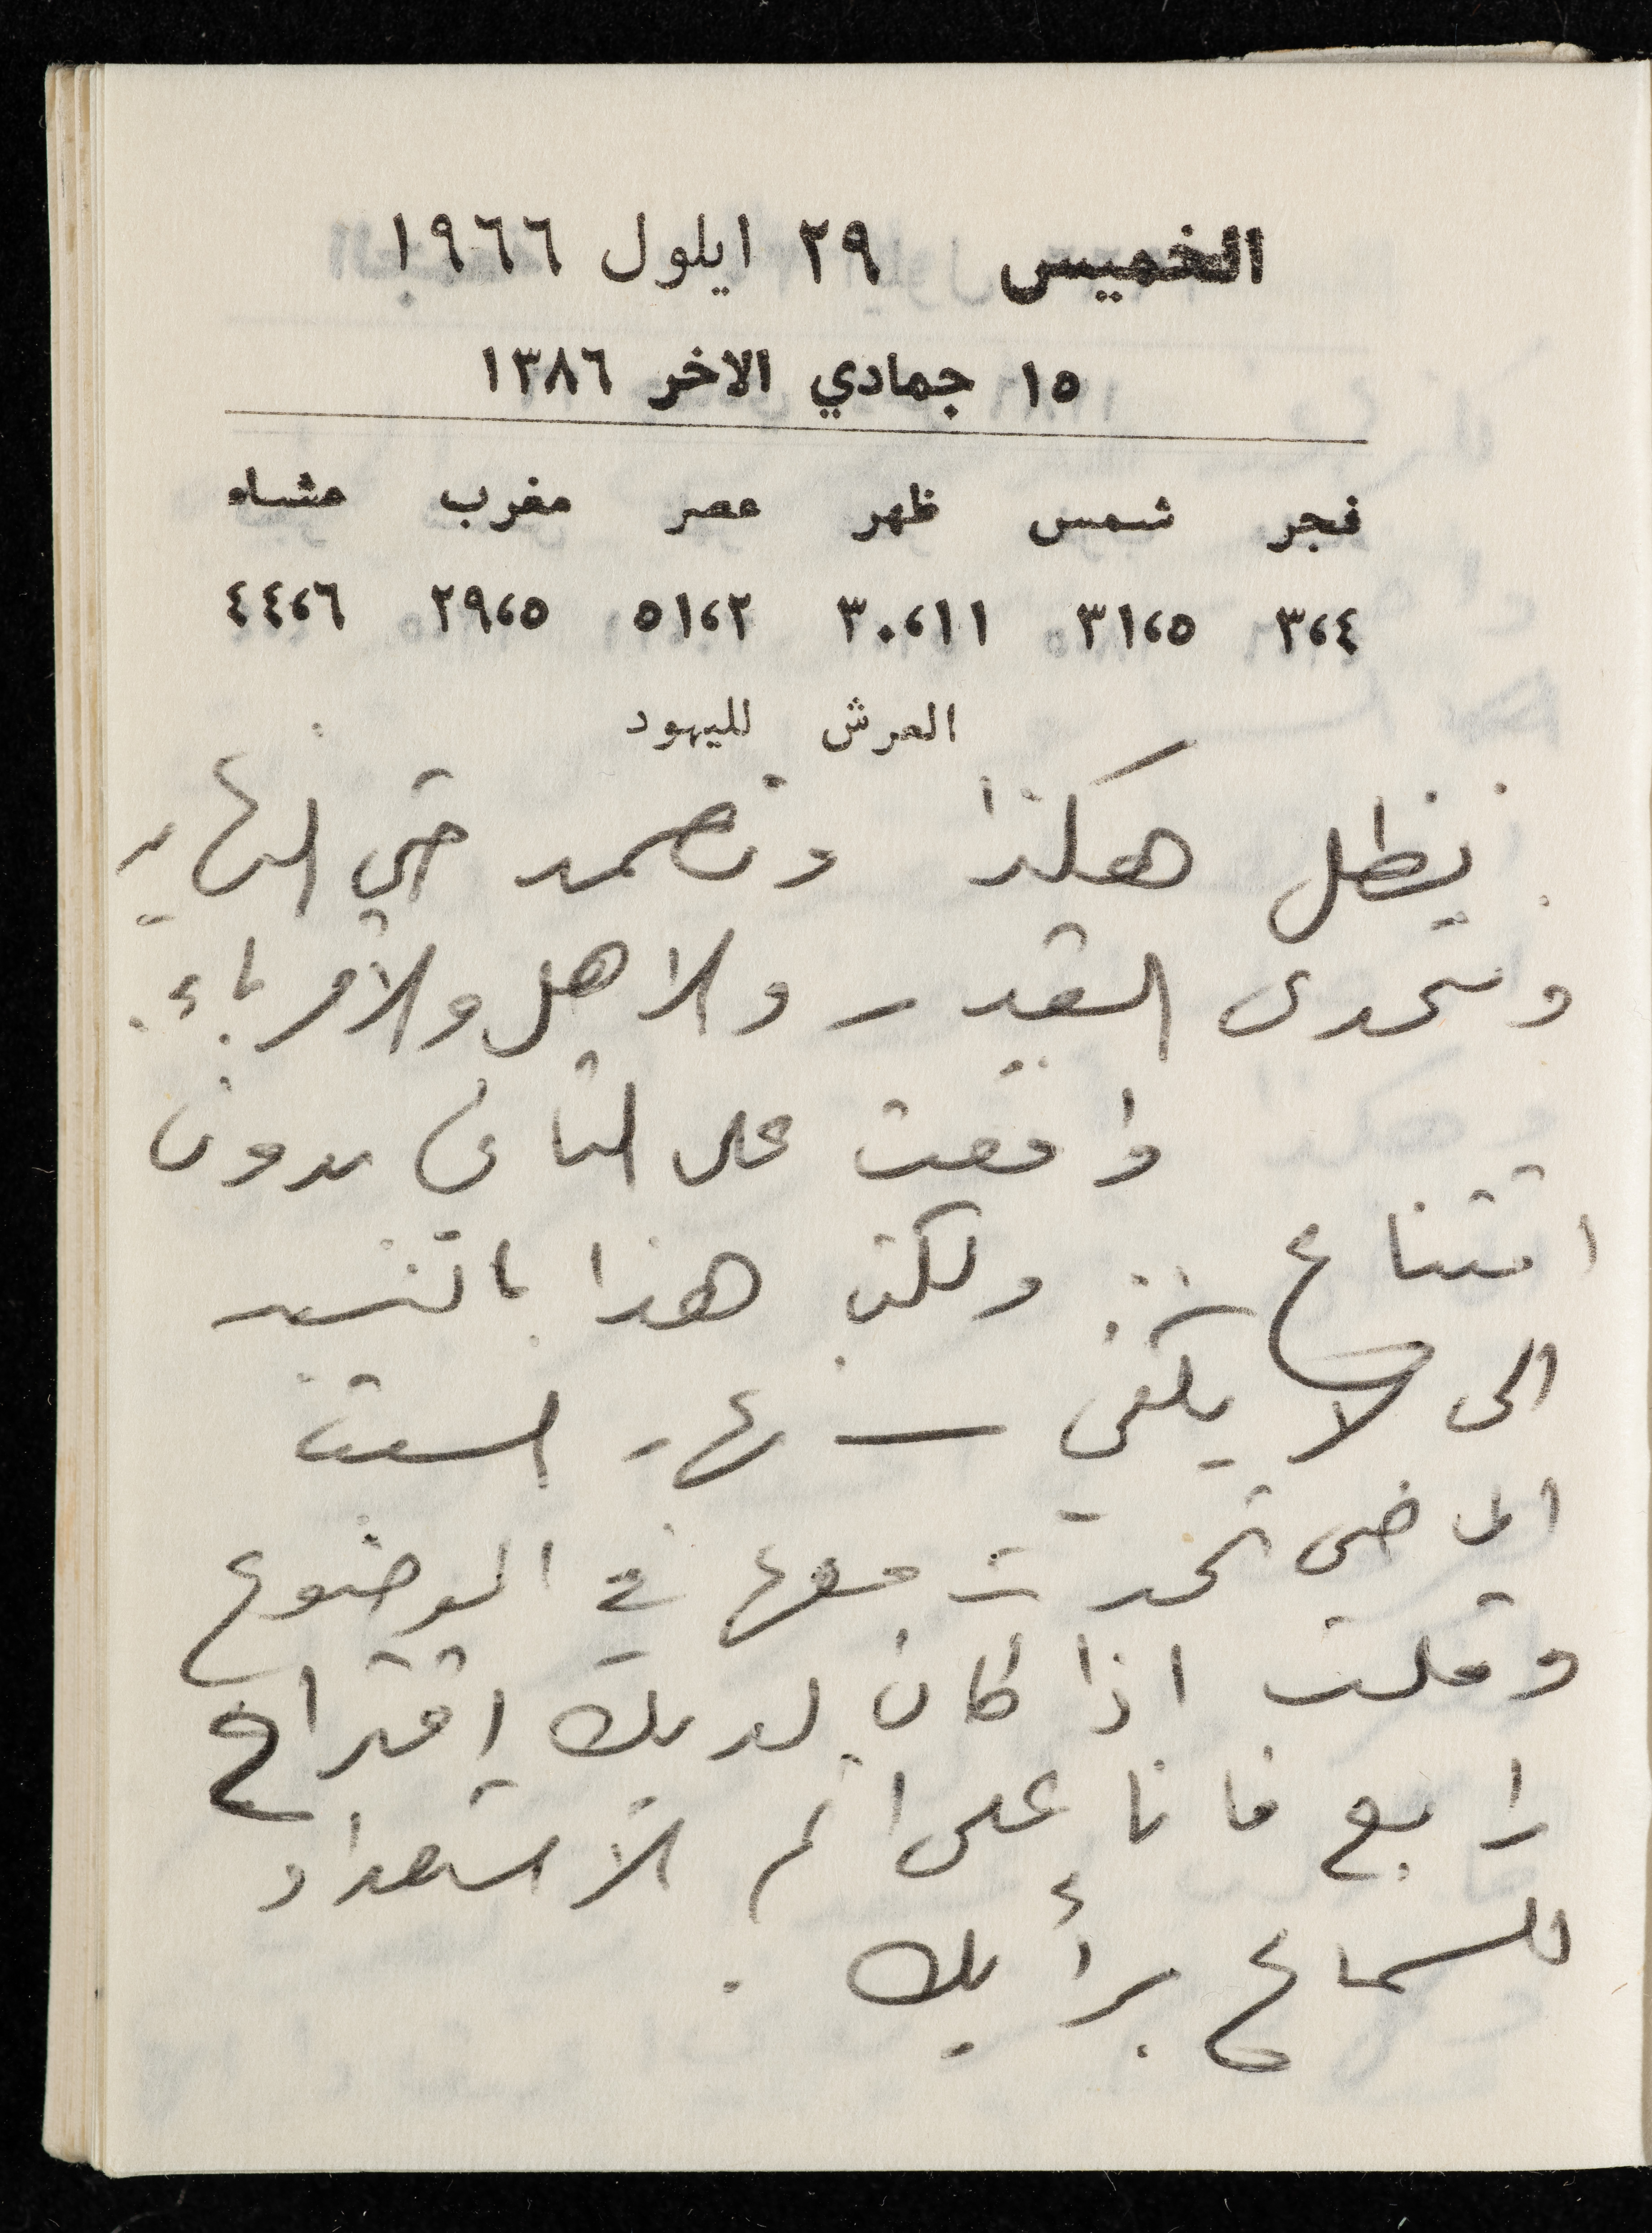 الخميس ٢٩ ايلول ١٩٦٦
١٥ جمادي الاخر ١٣٨٦
فجر شمس ظهر عصر مغرب عشاء
٣،٤ ٣١،٥ ٣٠،١١ ٥١،٢ ٢٩،٥ ٤٤،٦
العرش لليهود
نظل هكذا ونصمد حتى النهاية
ونتحدى القدر والاهل والأقرباء.
وافقت على الثاني بدون
اقتناع .. ولكن هذا بالنسبه
الى لا يكفي — نهار السبت
الماضي تحدثت معها في الموضوع
وقلت اذا كان لديك إقتراح
رابع فانا على اتم الأستعداد
للسماع برأيك .